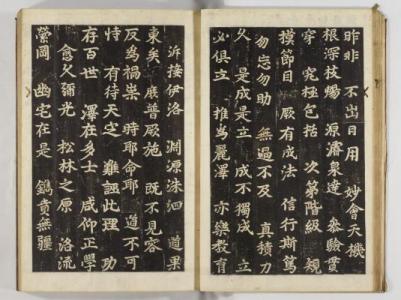 昨非 不出日用 妙會天機
根深枝暢 源濬泉達 叅驗貫
穿 究極包括 次第階級 規
摸節目 厥有成法 信行斯篤
勿忘勿助 無過不及 真積力
久 是成是立 成不獨成 立
必俱立 推爲麗澤 亦樂教育
泝接伊洛 淵源洙泗 道果
東矣 庶普厥施 旣不見容
反爲禍祟 時耶命耶 道不可
恃 有待天定 難誣此理 功
存百世 澤在多士 咸仰正學
愈久彌光 松林之原 洛流
縈岡 幽宅在是 鐫賁無疆